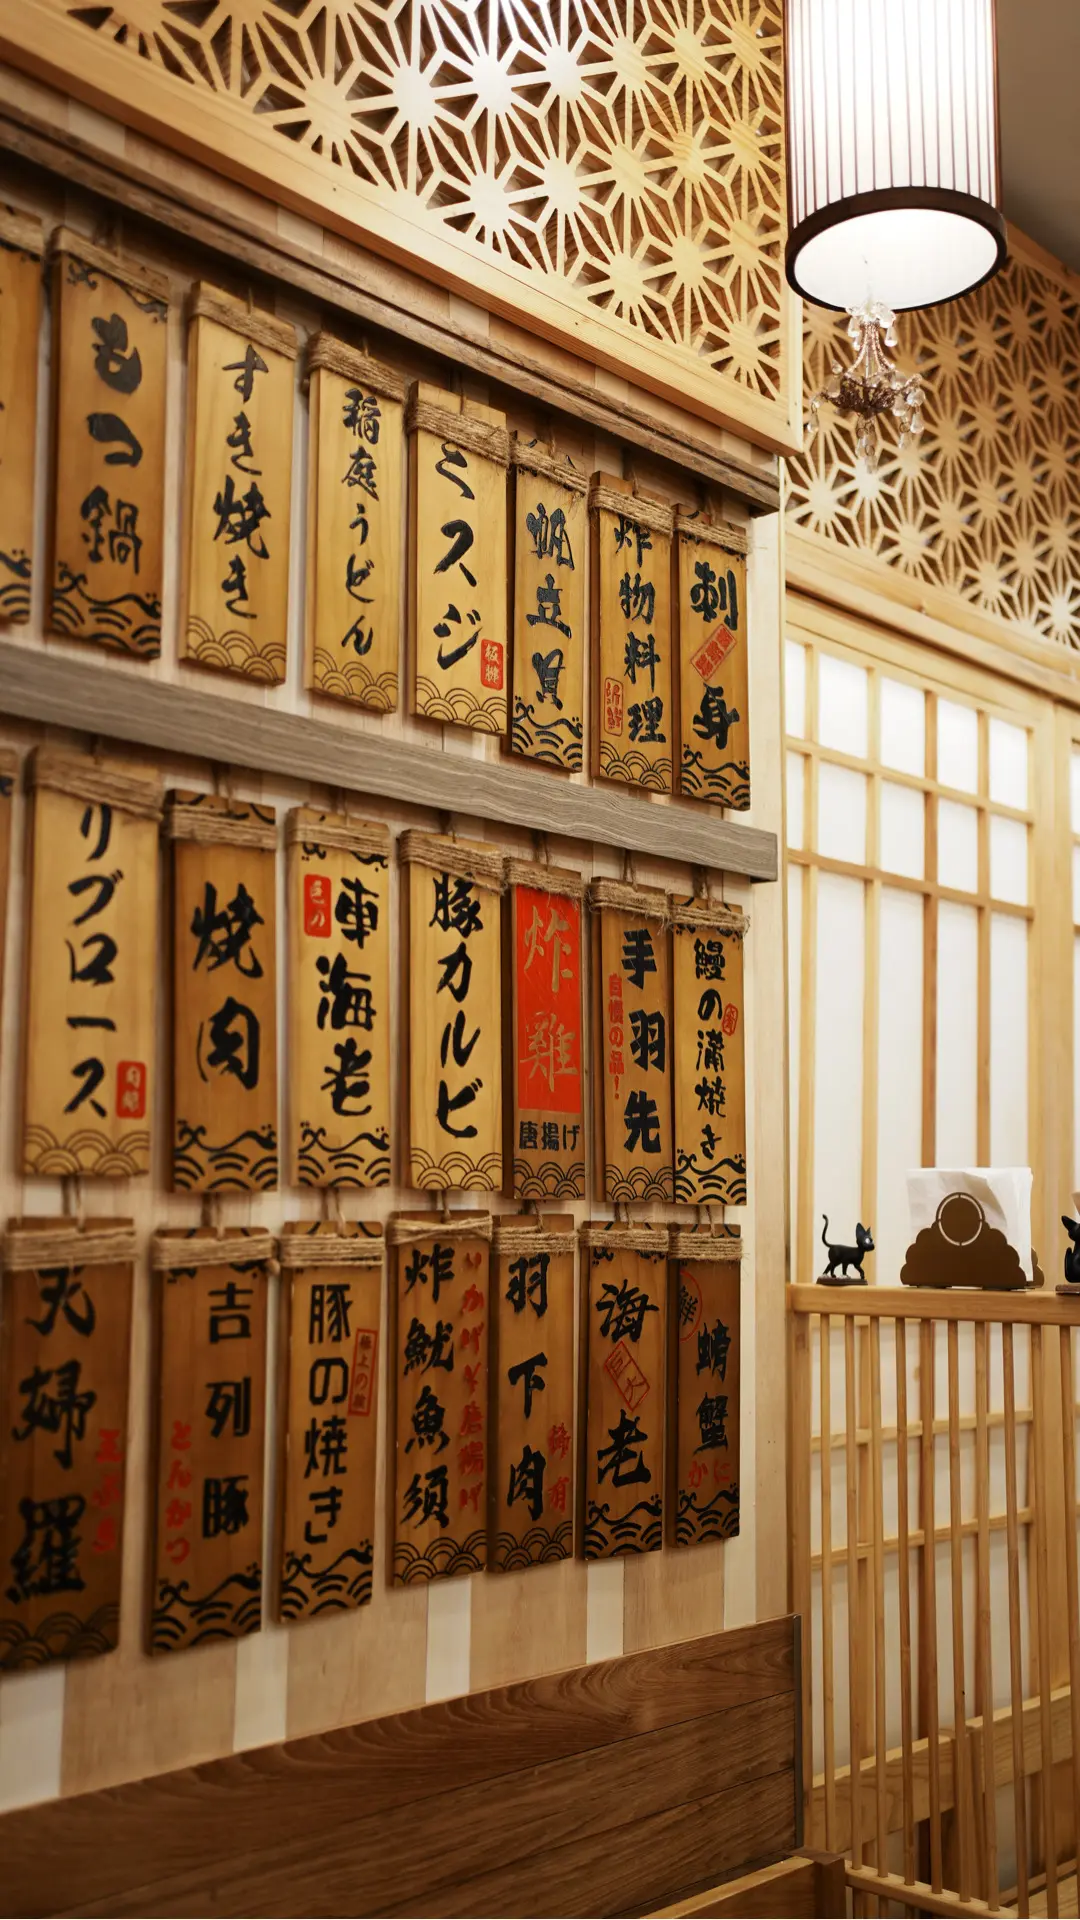 もつ鍋
すき焼き
稲庭うどん
ミスジ
帆立貝
炸物料理
刺身
リブロース
焼肉
車海老
豚カルビ
炸雞
唐揚げ
手羽先
自慢の品!
鰻の蒲焼き
天婦羅
吉列豚
とんかつ
豚の焼き
極上の味
炸魷魚須
いかげそ唐揚げ
羽下肉
海老
巨大
鮮
螃蟹
かに